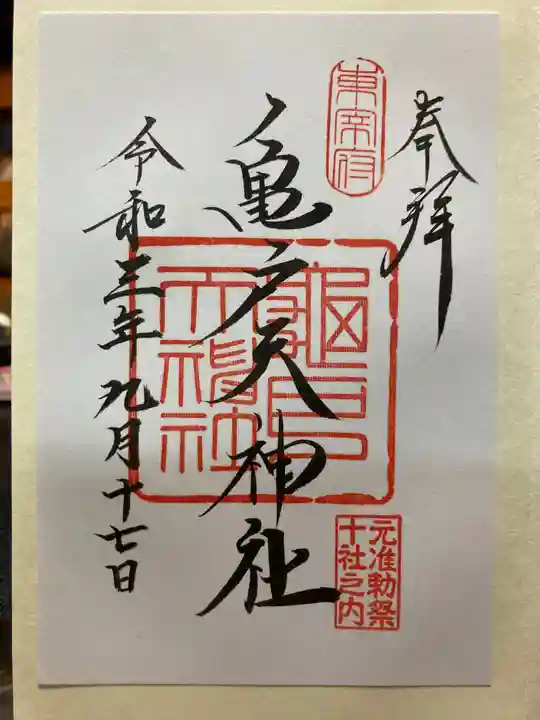 奉拝
東宰府
亀戸天神社
亀戸天神社
元准勅祭
十社之内
令和三年九月十七日